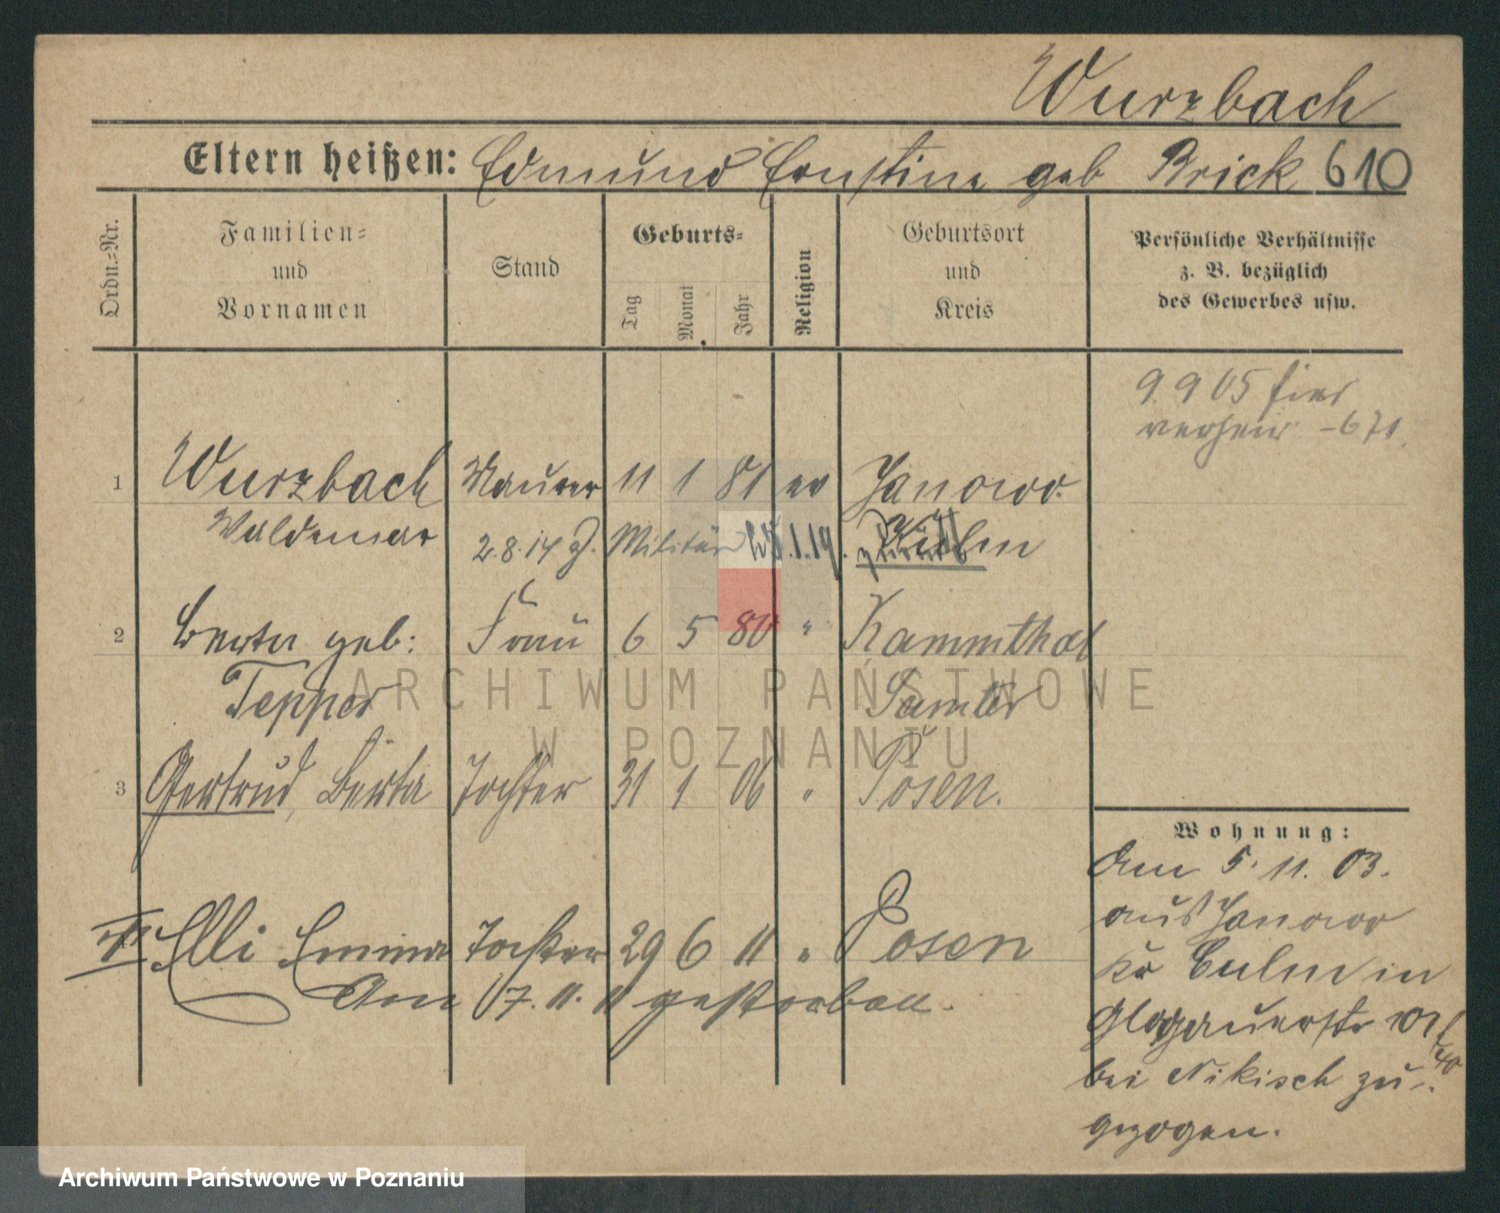 Wurzbach
Eltern heißen: Edmund Ernstine geb Brick 610
Ordn.-Nr.
Familien- und Vornamen
Stand
Geburts-
Tag
Monat
Jahr
Religion
Geburtsort und Kreis
Persönliche Verhältnisse z. B. bezüglich des Gewerbes usw.
9. 9 05 hier
verheir - 671.
1 Wurzbach Maurer 11 1 81 ev Janowo
Waldemar 2.8.14 z. Militär .1.19. zurück Kulm
2 Berta geb: Frau 6 5 80 " Kammthal
Tepper Samter
3 Gertrud, Berta Tochter 31 1 06 " Posen.
Elli Emma Tochter 29 6 11 " Posen
Am 17. 11. 11 gestorben.
Wohnung:
Am 5. 11. 03.
aus Janowo
Kr Culm in
Glogauerstr
bei Nikisch zu-
gezogen.
ARCHIWUM PAŃSTWOWE
W POZNANIU
Archiwum Państwowe w Poznaniu